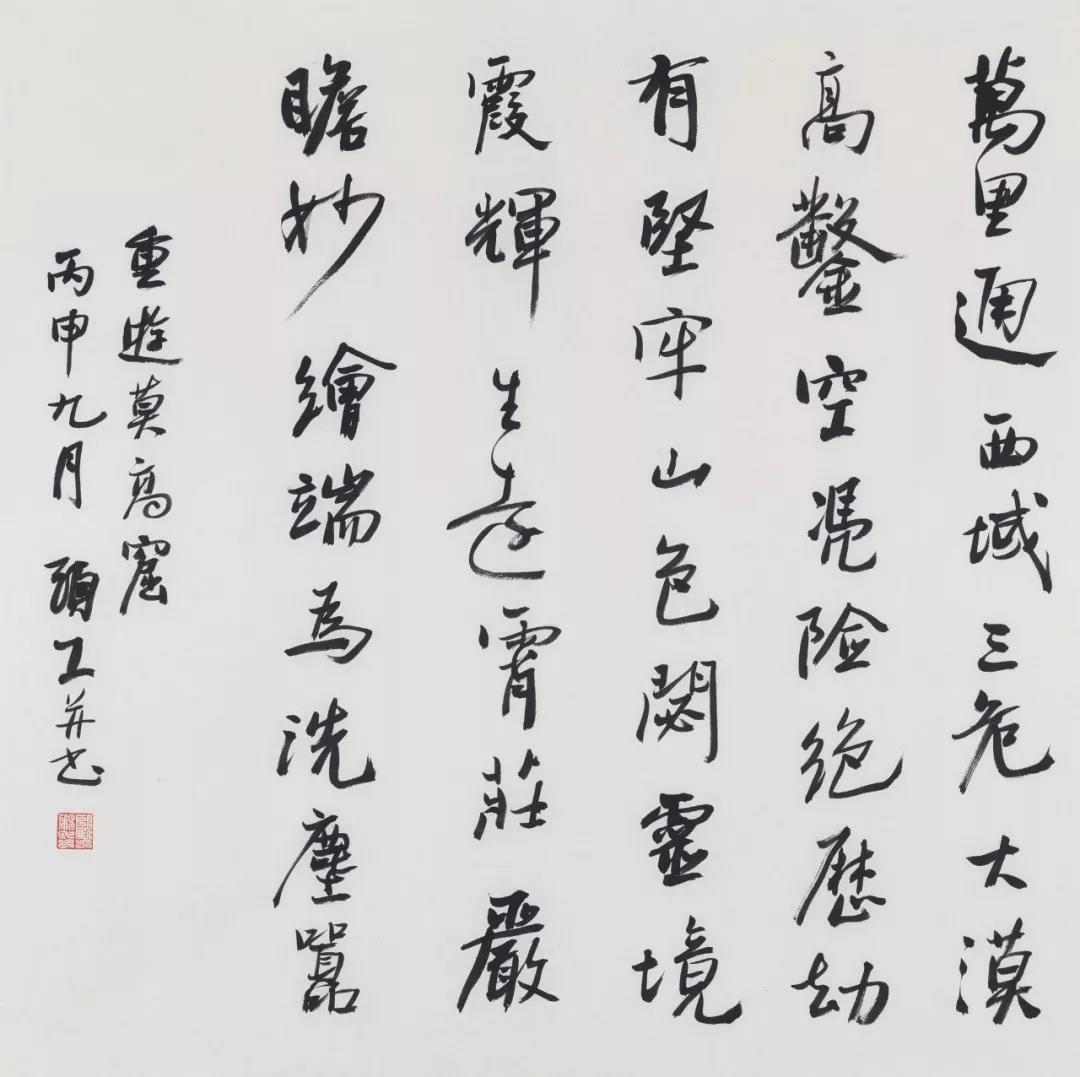 萬里通西域三危大漠
高鑿空凴險絕歷劫
有堅牢山色閟靈境
霞輝生遠霄莊嚴
瞻妙繪端為洗塵囂
重遊莫高窟
丙申九月 顧工并書